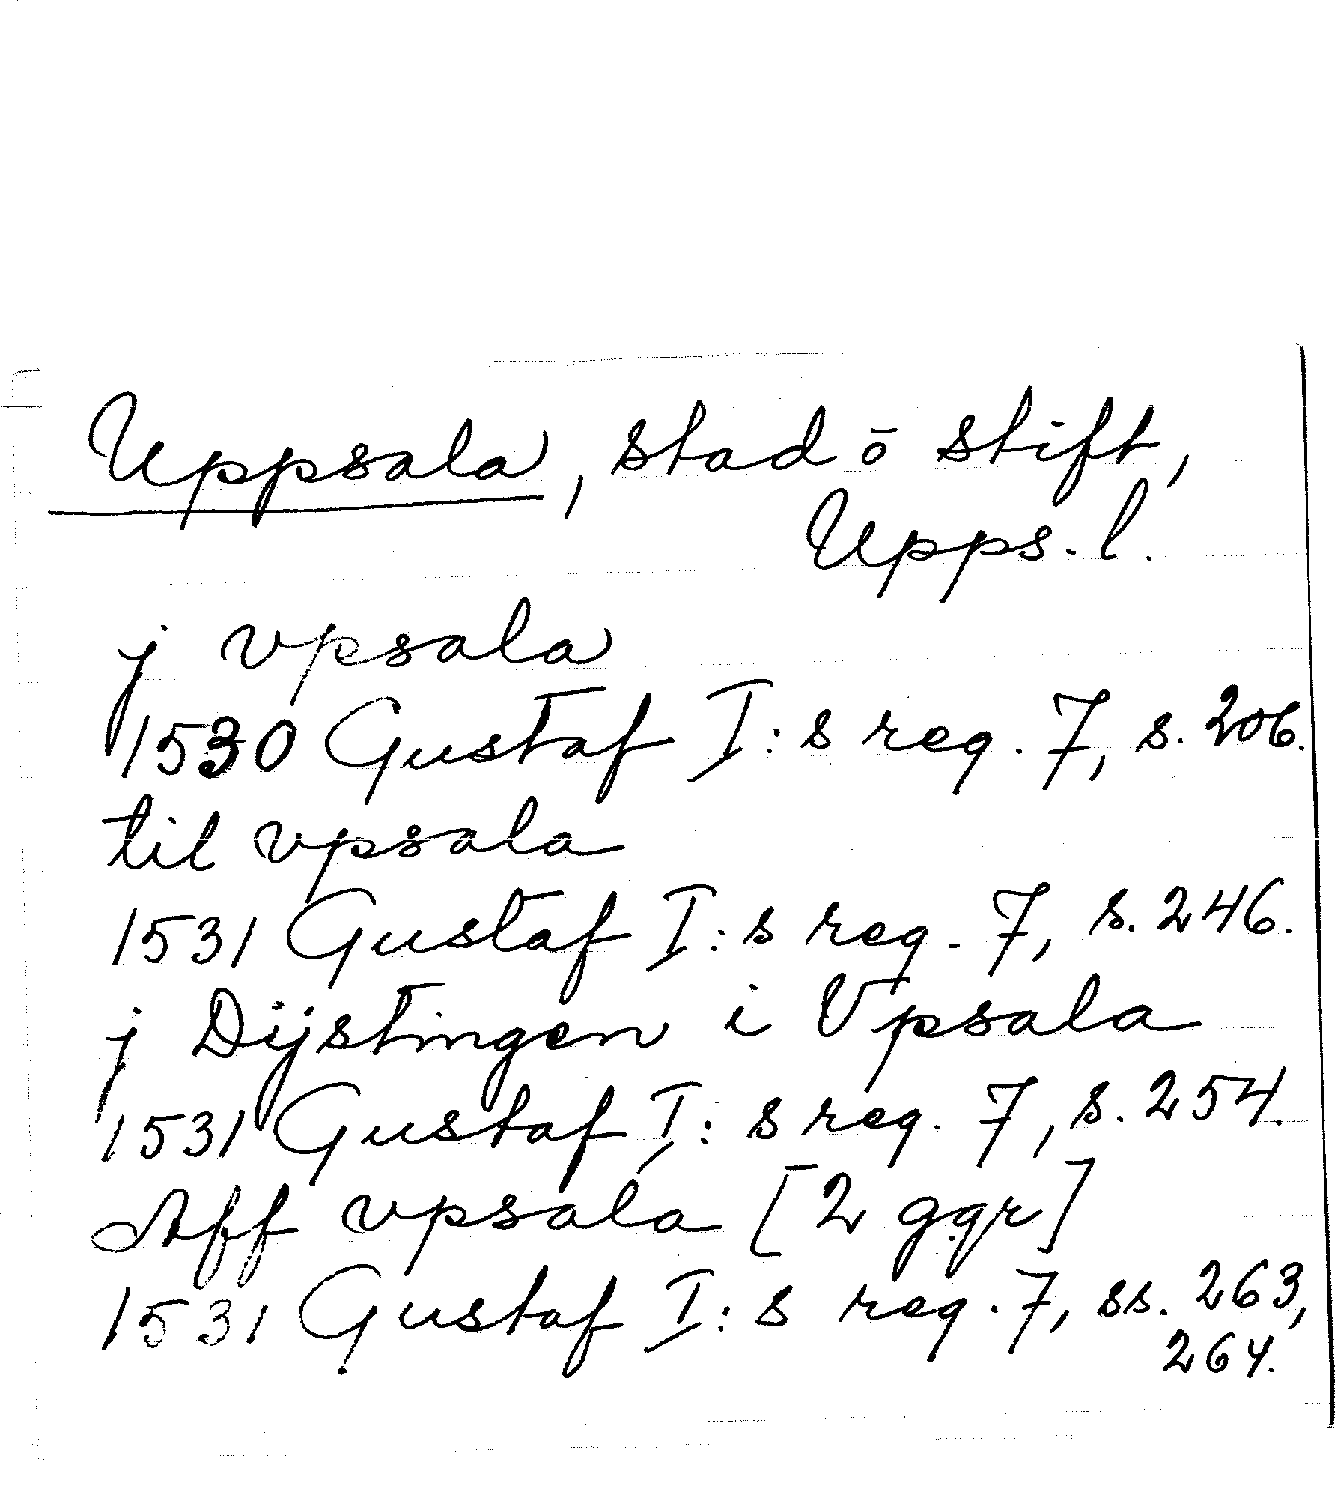 Uppsala, stad ō stift,
Upps. l.
j vpsala
1530 Gustaf I:s reg. 7, s. 206.
til vpsala
1531 Gustaf I:s reg. 7, s. 246.
j Dijstingen i Vpsala
1531 Gustaf I:s reg. 7, s. 254.
Aff vpsala [2 ggr]
1531 Gustaf I:s reg. 7, ss. 263,
264.